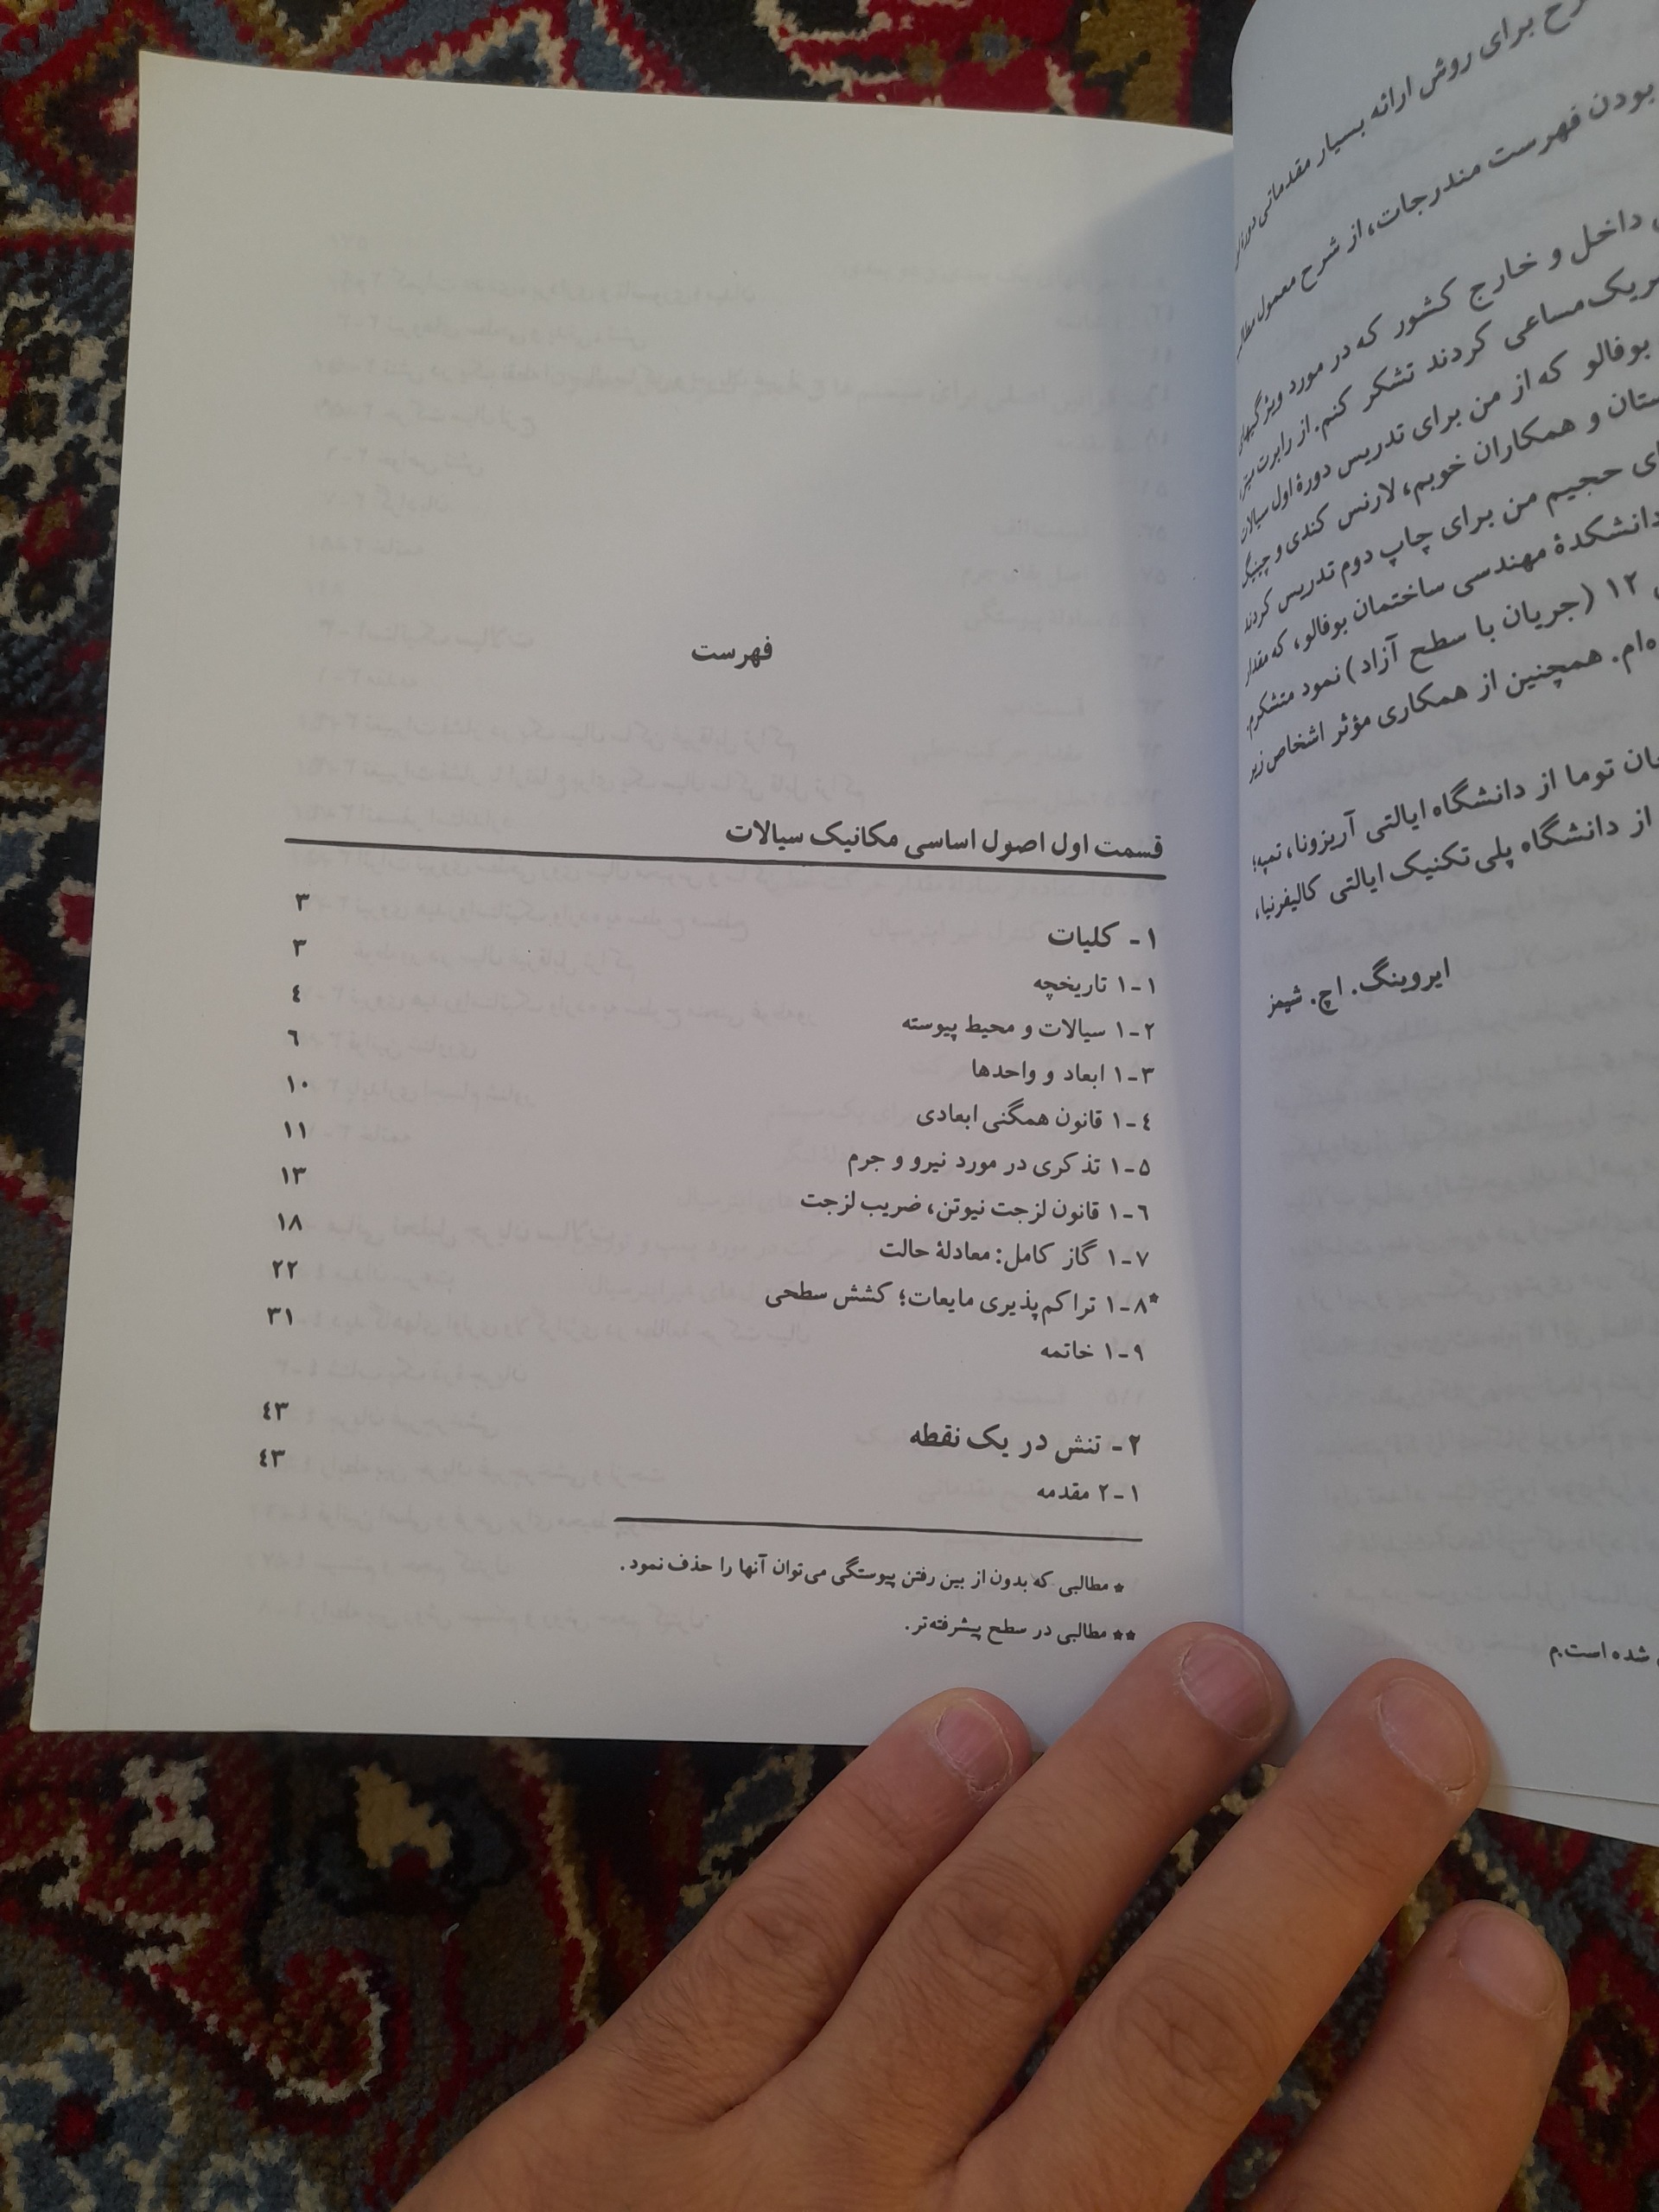 برای روش ارائه بسیار مقدماتی
بودن فهرست مندرجات، از شرح معمول
داخل و خارج کشور که در مورد ویژگیهای
مساعی کردند تشکر کنم. از رابرت
بوفالو که از من برای تدریس دورهٔ اول سیالات
و همکاران خوبم، لارنس کندی و
حجیم من برای چاپ دوم تدریس کردند
دانشکدهٔ مهندسی ساختمان بوفالو، که
۱۲ (جریان با سطح آزاد) نمود متشکرم.
همچنین از همکاری مؤثر اشخاص زیر
توما از دانشگاه ایالتی آریزونا، تمپه؛
از دانشگاه پلی تکنیک ایالتی کالیفرنیا،
ایروینگ. اچ. شیمز
شده است.م
فهرست
قسمت اول اصول اساسی مکانیک سیالات
۱- کلیات ۳
۱-۱ تاریخچه ۳
۱-۲ سیالات و محیط پیوسته ٤
۱-۳ ابعاد و واحدها ٦
۱-٤ قانون همگنی ابعادی ۱۰
۱-۵ تذکری در مورد نیرو و جرم ۱۱
۱-٦ قانون لزجت نیوتن، ضریب لزجت ۱۳
۱-۷ گاز کامل: معادلهٔ حالت ۱۸
*۱-۸ تراکم‌پذیری مایعات؛ کشش سطحی ۲۲
۱-۹ خاتمه ۳۱
۲- تنش در یک نقطه ٤۳
۲-۱ مقدمه ٤۳
* مطالبی که بدون از بین رفتن پیوستگی می‌توان آنها را حذف نمود.
** مطالبی در سطح پیشرفته‌تر.